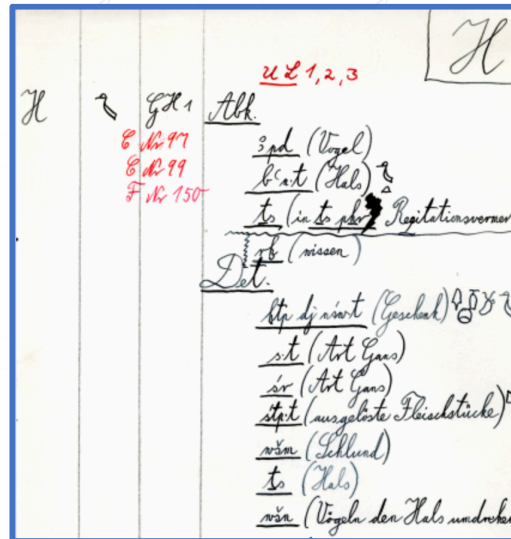 H
UL 1, 2, 3
H GH 1 Abk.
C Nr 97 ꜣpd (Vogel)
C Nr 99 bꜥn.t (Hals)
F Nr 150 ṯs (in ṯs pḫr Rezitationsvermer
rḫ (wissen)
Det.
ḥtp dj nśw.t (Geschenk)
s.t (Art Gans)
śr (Art Gans)
śtp.t (ausgelöste Fleischstücke)
wšm (Schlund)
ṯs (Hals)
wšn (Vögeln den Hals umdrehen